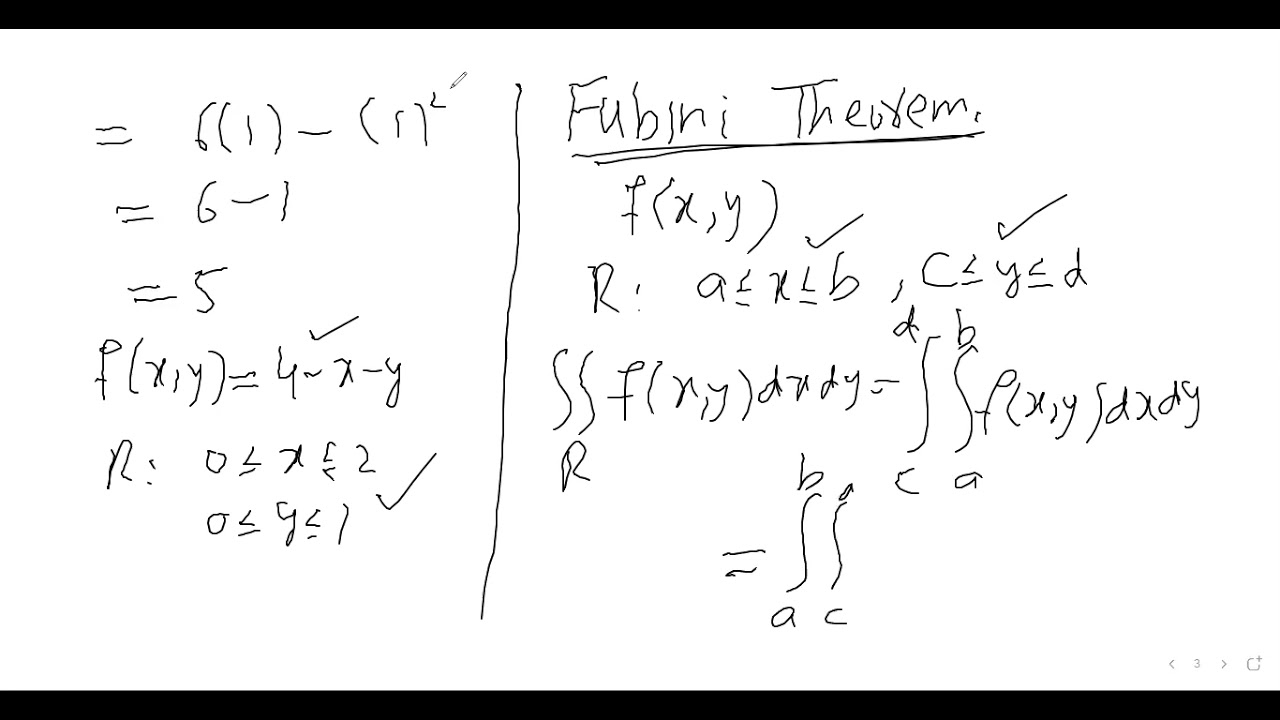 = 6(1) - (1)²
= 6 - 1
= 5
f(x,y) = 4 - x - y
R: 0 ≤ x ≤ 2
0 ≤ y ≤ 1
Fubini Theorem.
f(x,y)
R: a ≤ x ≤ b , c ≤ y ≤ d
∫∫_R f(x,y) dx dy = ∫_c^d ∫_a^b f(x,y) dx dy
= ∫_a^b ∫_c
3